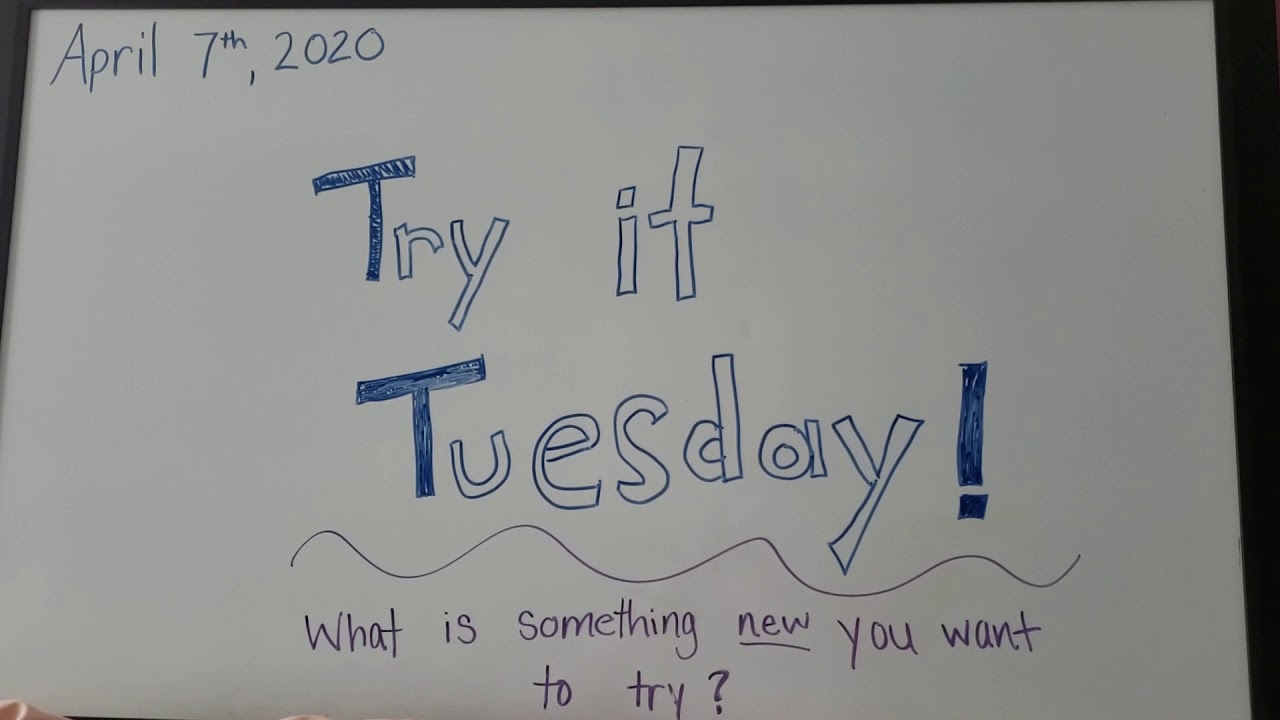 April 7th, 2020
Try it
Tuesday!
What is something new you want
to try?